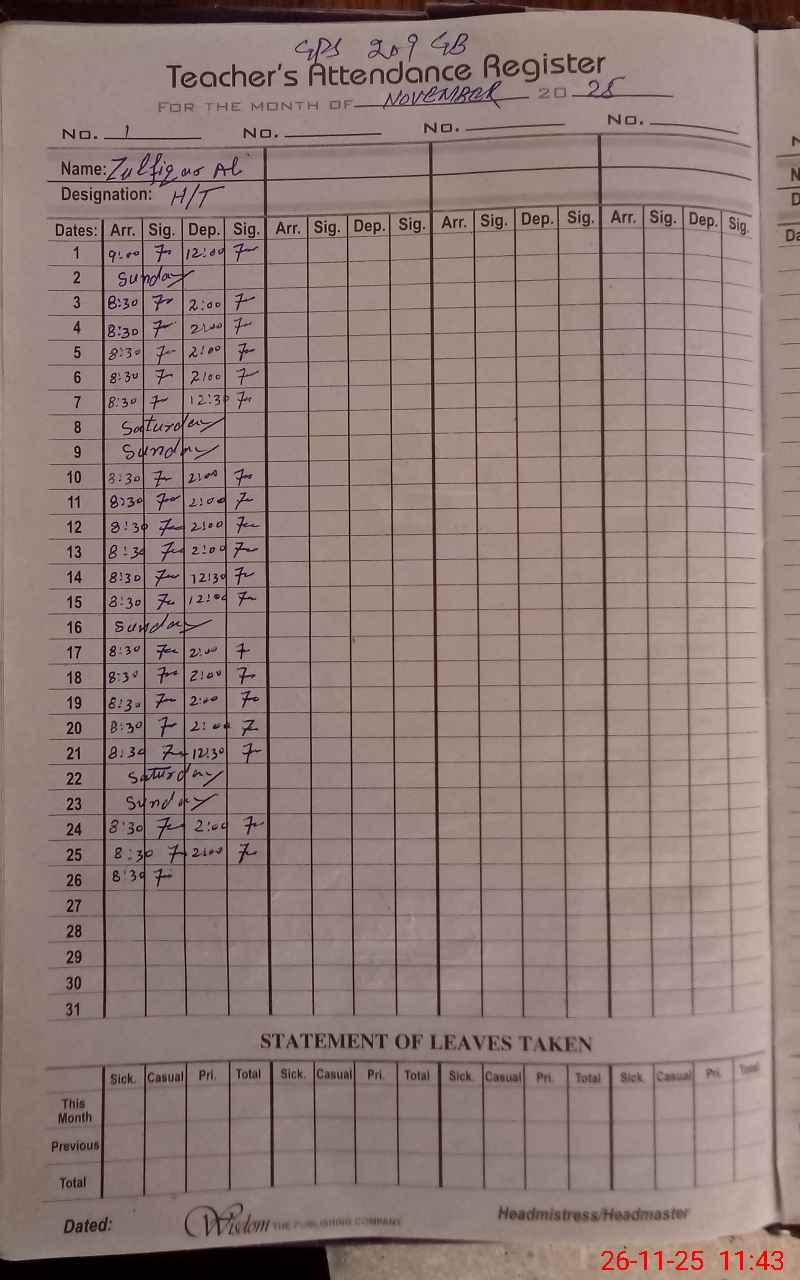 GPS 209 GB
Teacher's Attendance Register
FOR THE MONTH OF NOVEMBER 20 25
No. 1 No. No. No.
Name: Zulfiqar Ali
Designation: H/T
Dates: Arr. Sig. Dep. Sig. Arr. Sig. Dep. Sig. Arr. Sig. Dep. Sig. Arr. Sig. Dep. Sig.
1 9:00 12:00
2 Sunday
3 8:30 2:00
4 8:30 2:00
5 8:30 2:00
6 8:30 2:00
7 8:30 12:30
8 Saturday
9 Sunday
10 8:30 2:00
11 8:30 2:00
12 8:30 2:00
13 8:30 2:00
14 8:30 12:30
15 8:30 12:00
16 Sunday
17 8:30 2:00
18 8:30 2:00
19 8:30 2:00
20 8:30 2:00
21 8:30 12:30
22 Saturday
23 Sunday
24 8:30 2:00
25 8:30 2:00
26 8:30
27
28
29
30
31
STATEMENT OF LEAVES TAKEN
Sick. Casual Pri. Total Sick. Casual Pri. Total Sick. Casual Pri. Total Sick. Casual Pri. Total
This
Month
Previous
Total
Dated: Wisdom THE PUBLISHING COMPANY Headmistress/Headmaster
26-11-25 11:43